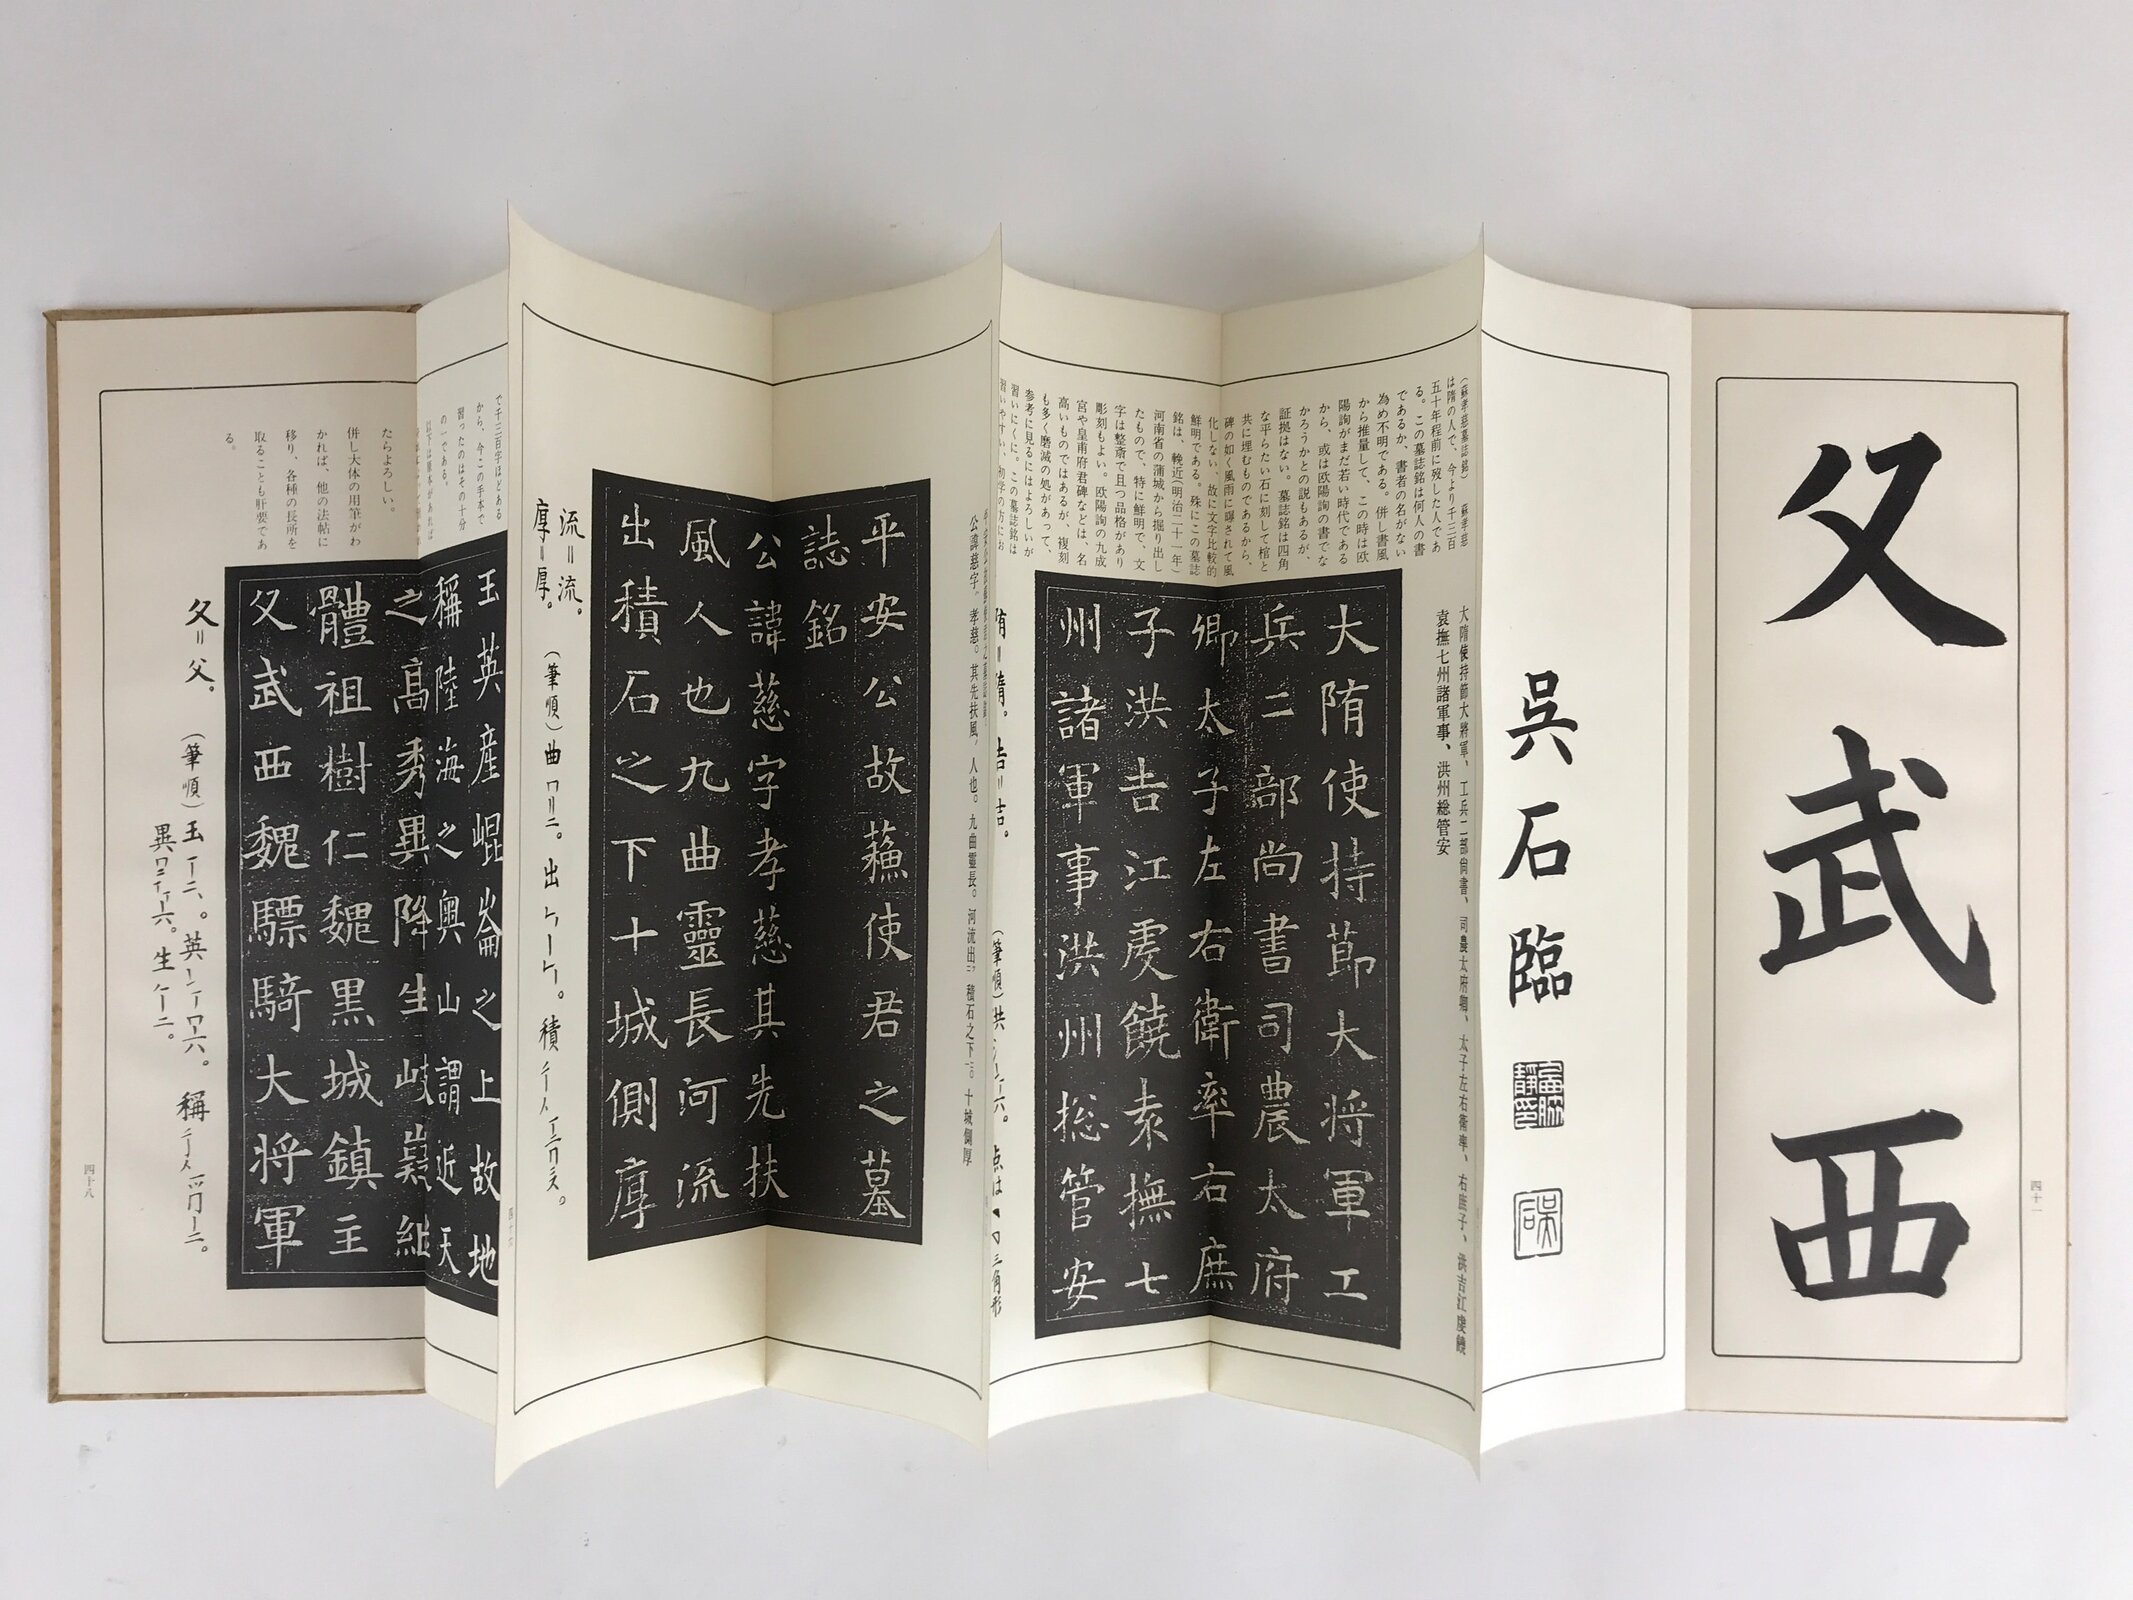 父武西
四十一
呉石臨
(蘇孝慈墓誌銘) 蘇孝慈
は隋の人で、今より千三百
五十年程前に歿した人であ
る。この墓誌銘は何人の書
であるか、書者の名がない
為め不明である。併し書風
から推量して、この時は欧
陽詢がまだ若い時代である
から、或は欧陽詢の書でな
かろうかとの説もあるが、
証拠はない。墓誌銘は四角
な平らたい石に刻して棺と
共に埋むものであるから、
碑の如く風雨に曝されて風
化しない、故に文字比較的
鮮明である。殊にこの墓誌
銘は、輓近(明治二十一年)
河南省の蒲城から掘り出し
たもので、特に鮮明で、文
字は整斎で且つ品格があり
彫刻もよい。欧陽詢の九成
宮や皇甫府君碑などは、名
高いものではあるが、複刻
も多く磨滅の処があって、
参考に見るにはよろしいが
習いにくに。この墓誌銘は
習いやすい、初学の方にお
大隋使持節大將軍、工兵二部尚書、司農太府卿、太子左右衛率、右庶子、洪吉江虔饒
袁撫七州諸軍事、洪州総管安
大隋使持節大將軍工
兵二部尚書司農太府
卿太子左右衛率右庶
子洪吉江虔饒袁撫七
州諸軍事洪州揔管安
隋=隋。吉=吉。
(筆順)洪
点は
三角形
公諱慈字。孝慈。其先扶風、人也。九曲靈長。河流出二積石之下一。十城側厚
平安公故蘓使君之墓
誌銘
公諱慈字孝慈其先扶
風人也九曲靈長河流
出積石之下十城側厚
流=流。
厚=厚。
(筆順)曲
出
積
で千三百字ほどある
から、今この手本で
習ったのはその十分
の一である。
玉英産崐崙之上故地
稱陸海之奥山謂近天
之髙秀異降生岐嶷継
體祖樹仁魏黒城鎮主
父武西魏驃騎大将軍
たらよろしい。
併し大体の用筆がわ
かれば、他の法帖に
移り、各種の長所を
取ることも肝要であ
る。
父=父。
(筆順)玉
英
稱
異
生
四十八